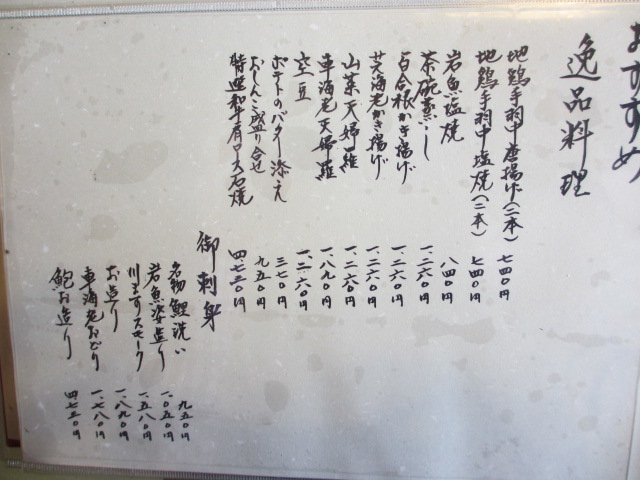 おすすめ
逸品料理
地鶏手羽中唐揚げ(二本) 七四〇円
地鶏手羽中塩焼(二本) 七四〇円
岩魚塩焼 八四〇円
茶碗蒸し 一、二六〇円
百合根かき揚げ 一、二六〇円
芝海老かき揚げ 一、二六〇円
山菜天婦羅 一、二六〇円
車海老天婦羅 一、八九〇円
空豆 一、二六〇円
ポテトのバター添え 三七〇円
おしんこ盛り合せ 九五〇円
特選和牛肩ロース石焼 四、七三〇円
御刺身
名物鯉洗い 九五〇円
岩魚姿造り 一、〇五〇円
川ますスモーク 一、五八〇円
お造り 一、八九〇円
車海老おどり 一、七八〇円
鮑お造り 四、七三〇円